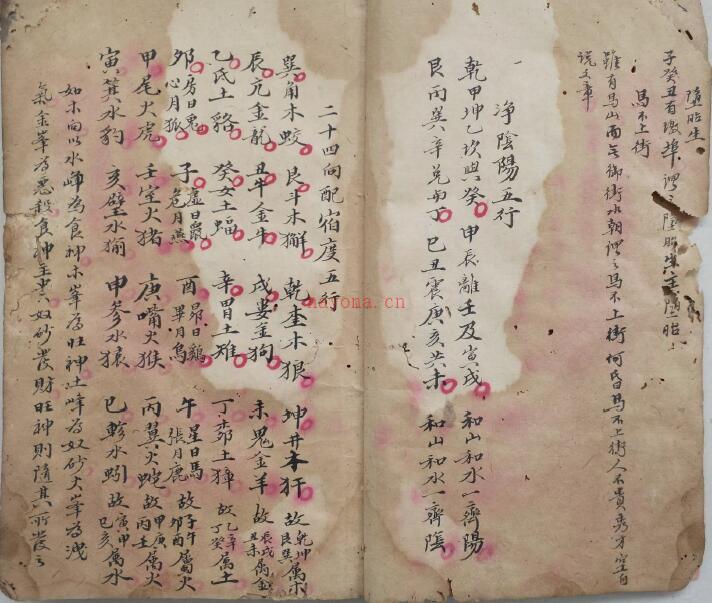 墮胎生
子癸丑有墩埠謂之墮胎生主墮胎
馬不上街
雖有馬山而無御街水朝謂之馬不上街何昏馬不上街人不貴秀才空自
説文章
淨陰陽五行
乾甲坤乙坎與癸 申辰離壬及寅戌 和山和水一齊陽
艮丙巽辛兌與丁 巳丑震庚亥共未 和山和水一齊陰
二十四向配宿度五行
巽角木蛟 艮斗木獬 乾奎木狼 坤井木犴 故乾坤艮巽属木
辰亢金龍 丑牛金牛 戌婁金狗 未鬼金羊 故辰戌丑未属金
乙氐土貉 癸女土蝠 辛胃土雉 丁柳土獐 故乙辛丁癸属土
卯房日兔心月狐 子虛日鼠危月燕 酉昴日鷄畢月烏 午星日馬張月鹿 故子午卯酉属火
甲尾火虎 壬室火猪 庚嘴火猴 丙翼火蛇 故甲庚丙壬属火
寅箕水豹 亥壁水㺄 申參水猿 巳軫水蚓 故寅申巳亥属水
如木向以水峰為食神木峯為旺神土峰為奴砂火峯為洩
氣金峯為惡殺食神主忠奴砂發財旺神則隨其所發
nayona.cn